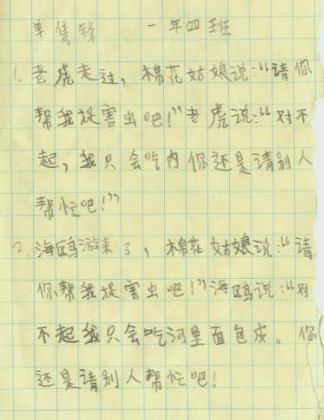 单隽锋 一年四班
1.老虎走过,棉花姑娘说:“请你
帮我捉害虫吧!”老虎说:“对不
起,我只会吃肉你还是请别人
帮忙吧!”
2.海鸥游来了,棉花姑娘说:“请
你帮我捉害虫吧!”海鸥说:“对
不起我只会吃河里面包皮。你
还是请别人帮忙吧!